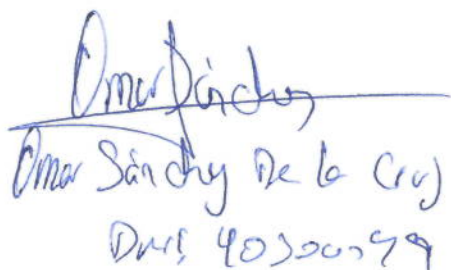 Omar Sánchez
Omar Sánchez De la Cruz
DNI: